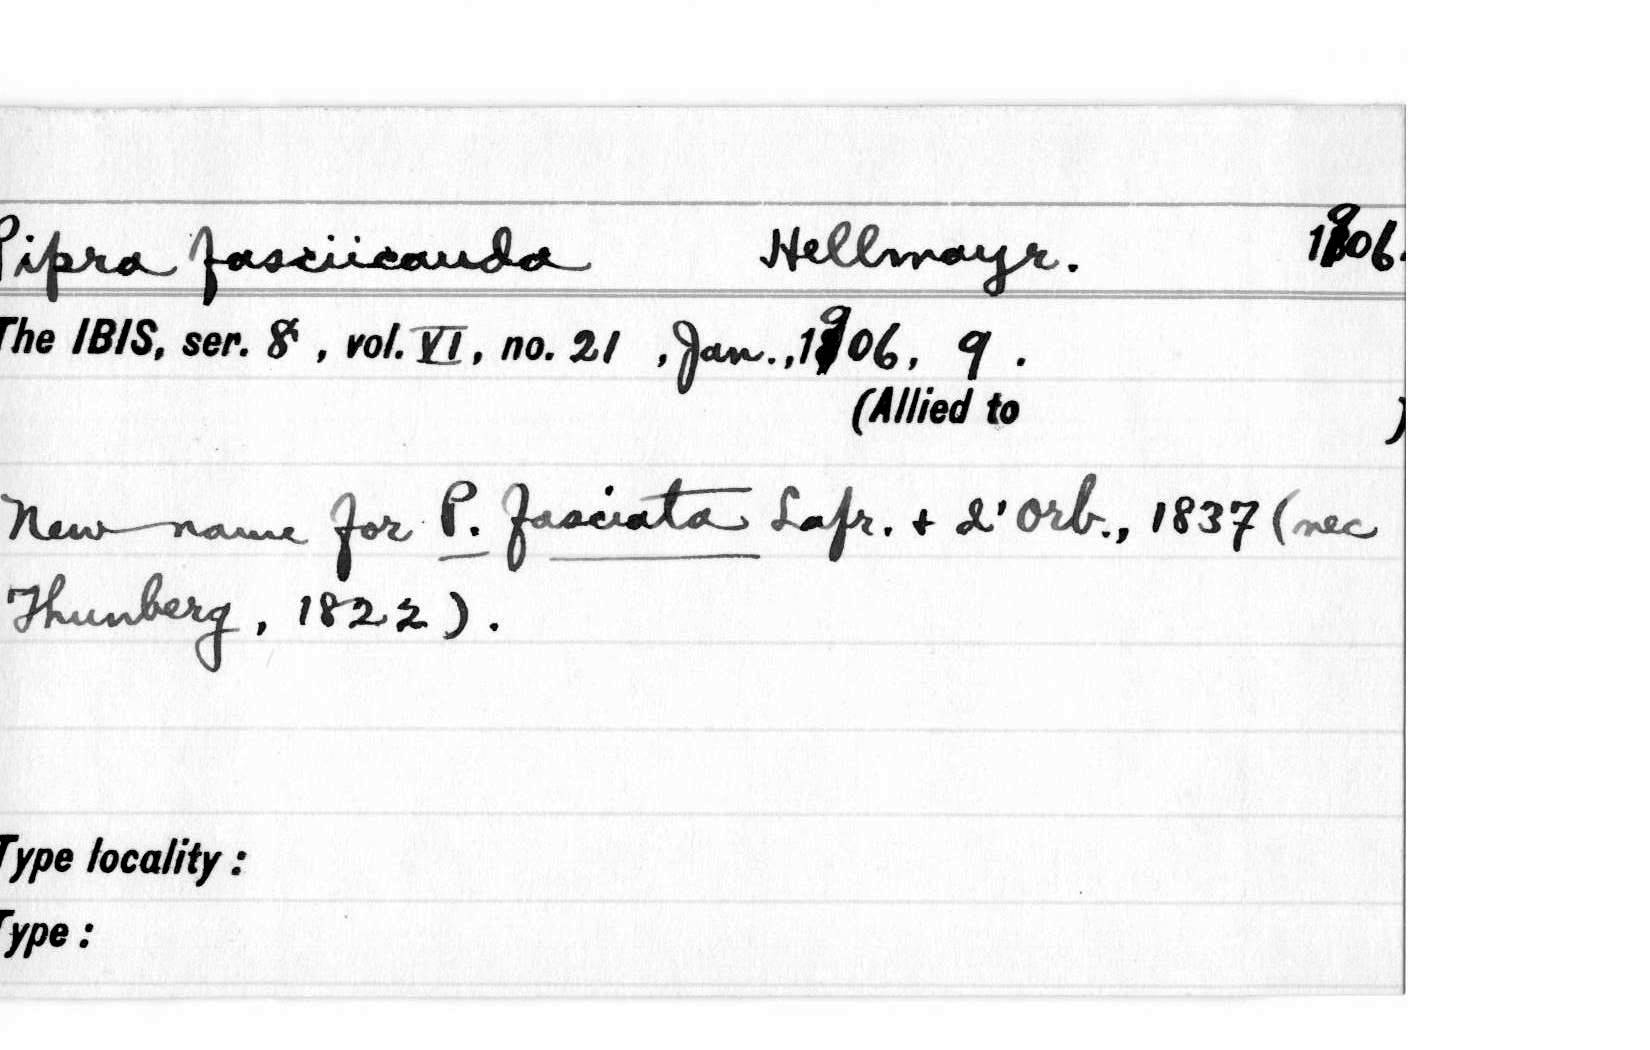 Pipra fasciicauda Hellmayr. 1906.
The IBIS, ser. 8, vol. VI, no. 21, Jan., 1906, 9.
(Allied to )
New name for P. fasciata Lafr. + d'Orb., 1837 (nec
Thunberg, 1822).
Type locality:
Type: